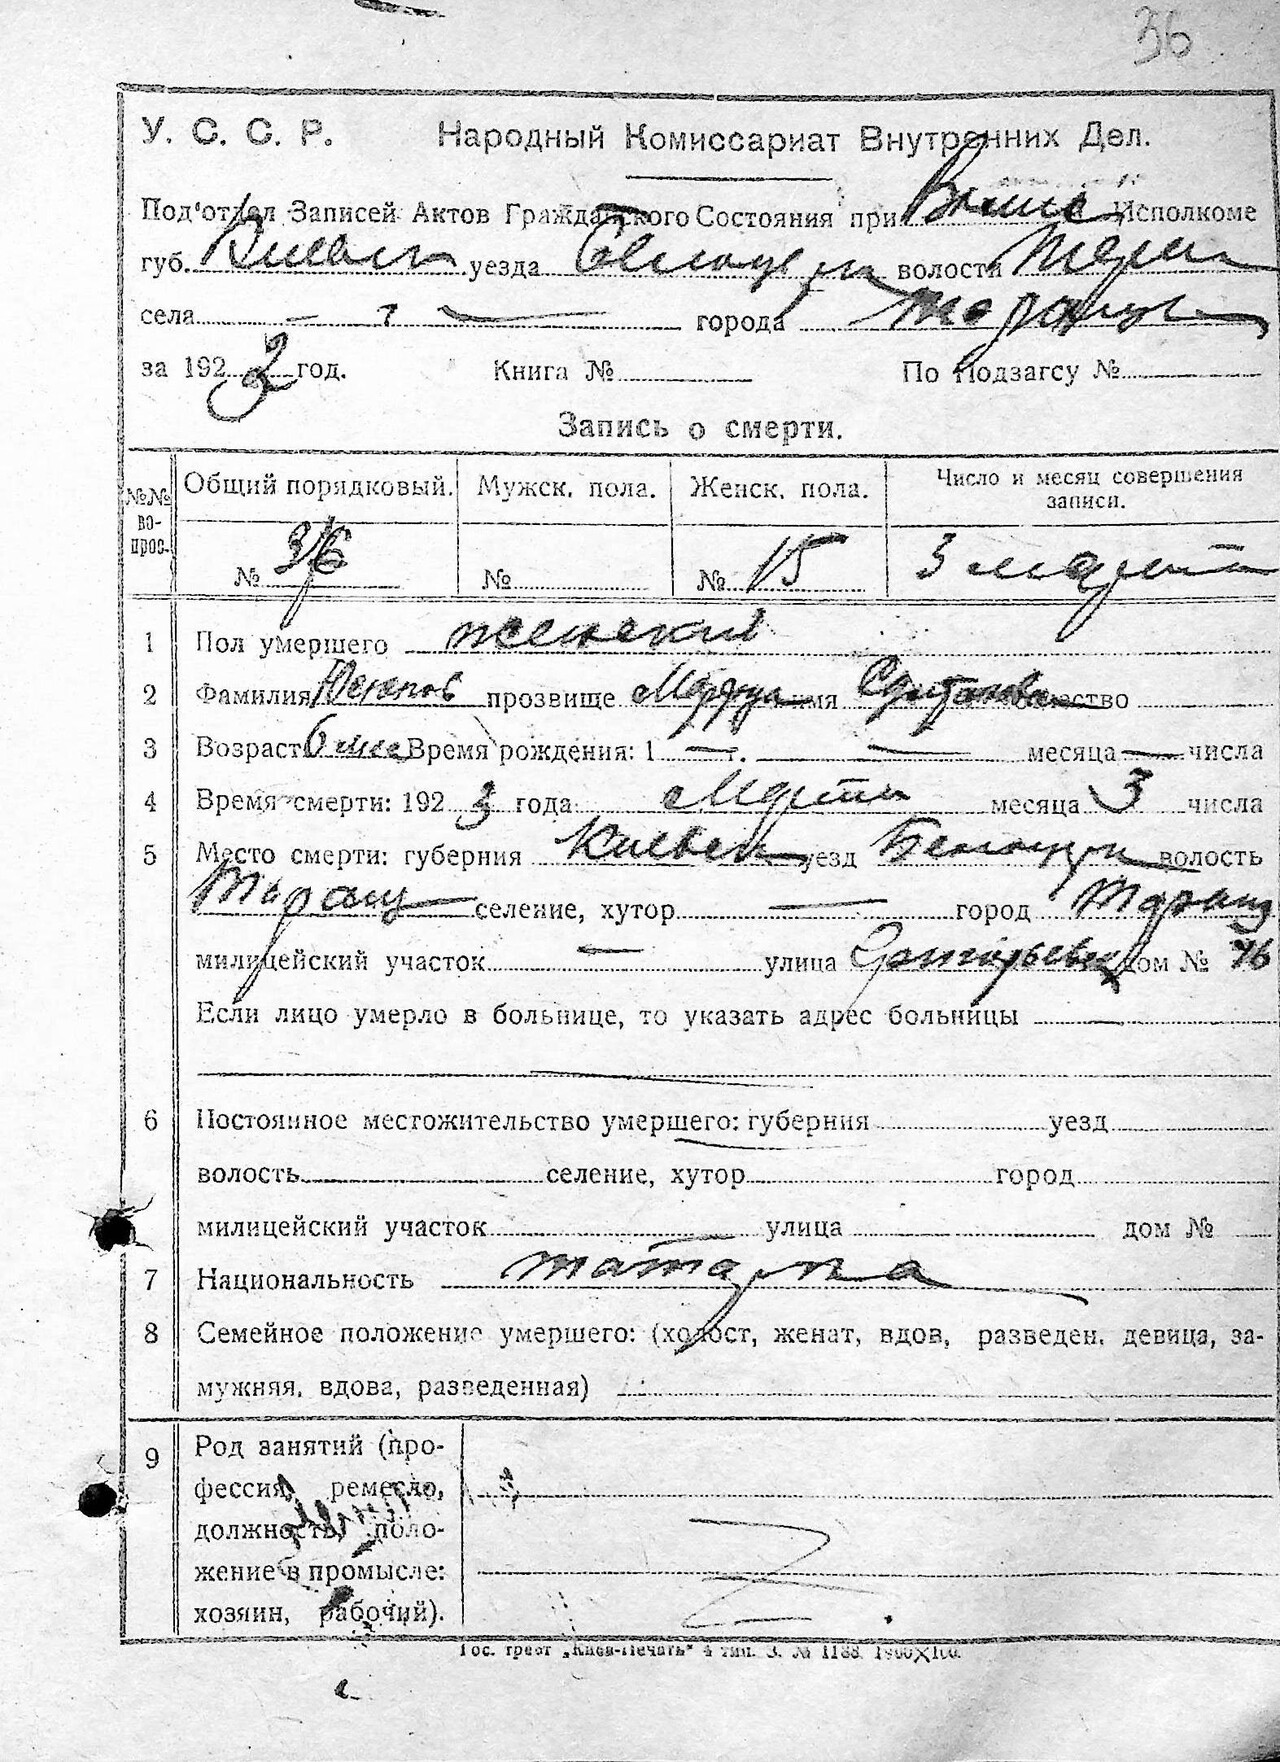 36
У. С. С. Р. Народный Комиссариат Внутренних Дел.
Под'отдел Записей Актов Гражданского Состояния при Исполкоме
губ. Киевск уезда волости
села — города
за 192 3 год. Книга № По Подзагсу №
Запись о смерти.
№№ вопрос. Общий порядковый. Мужск. пола. Женск. пола. Число и месяц совершения записи.
№ 36 № № 15 3 марта
1 Пол умершего женский
2 Фамилия Юсупов прозвище имя отчество
3 Возраст 6 мес Время рождения: 1 — г. — месяца — числа
4 Время смерти: 192 3 года Марта месяца 3 числа
5 Место смерти: губерния Киевск уезд волость
Таращ — селение, хутор — город Таращ
милицейский участок — улица дом № 46
Если лицо умерло в больнице, то указать адрес больницы —
6 Постоянное местожительство умершего: губерния уезд
волость селение, хутор город
милицейский участок улица дом №
7 Национальность татарка
8 Семейное положение умершего: (холост, женат, вдов, разведен, девица, за-
мужняя, вдова, разведенная)
9 Род занятий (про-
фессия, ремесло,
должность, поло-
жение в промысле:
хозяин, рабочий).
Гос. трест „Киев-Печать" 4 тип. З. № 1188.